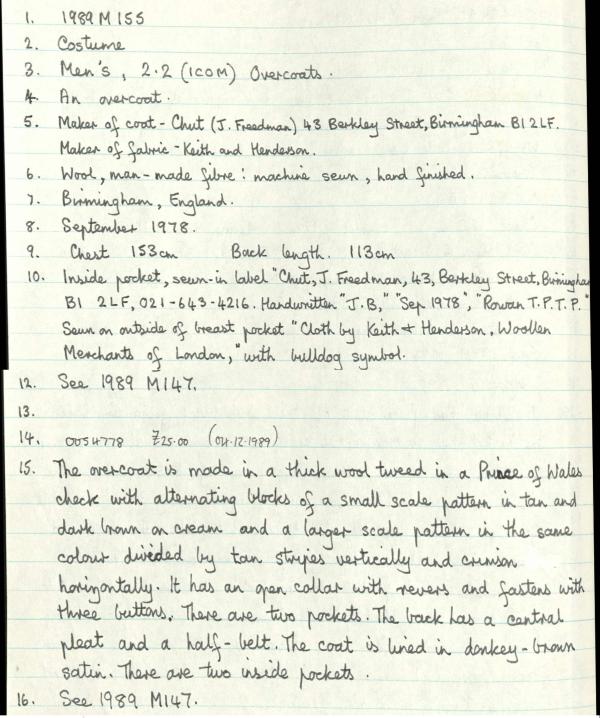 1. 1989 M 155
2. Costume
3. Men's, 2.2 (ICOM) Overcoats.
4. An overcoat.
5. Maker of coat - Chut (J. Freedman) 43 Berkley Street, Birmingham B1 2LF.
Maker of fabric - Keith and Henderson.
6. Wool, man-made fibre: machine sewn, hand finished.
7. Birmingham, England.
8. September 1978.
9. Chest 153cm Back length. 113cm
10. Inside pocket, sewn-in label "Chut, J. Freedman, 43, Berkley Street, Birmingham
B1 2LF, 021-643-4216. Handwritten "J.B," "Sep 1978", "Rowan T.P.T.P."
Sewn on outside of breast pocket "Cloth by Keith + Henderson, Woollen
Merchants of London," with bulldog symbol.
12. See 1989 M147.
13.
14. 0054778 £25.00 (04.12.1989)
15. The overcoat is made in a thick wool tweed in a Prince of Wales
check with alternating blocks of a small scale pattern in tan and
dark brown on cream and a larger scale pattern in the same
colour divided by tan stripes vertically and crimson
horizontally. It has an open collar with revers and fastens with
three buttons. There are two pockets. The back has a central
pleat and a half-belt. The coat is lined in donkey-brown
satin. There are two inside pockets.
16. See 1989 M147.